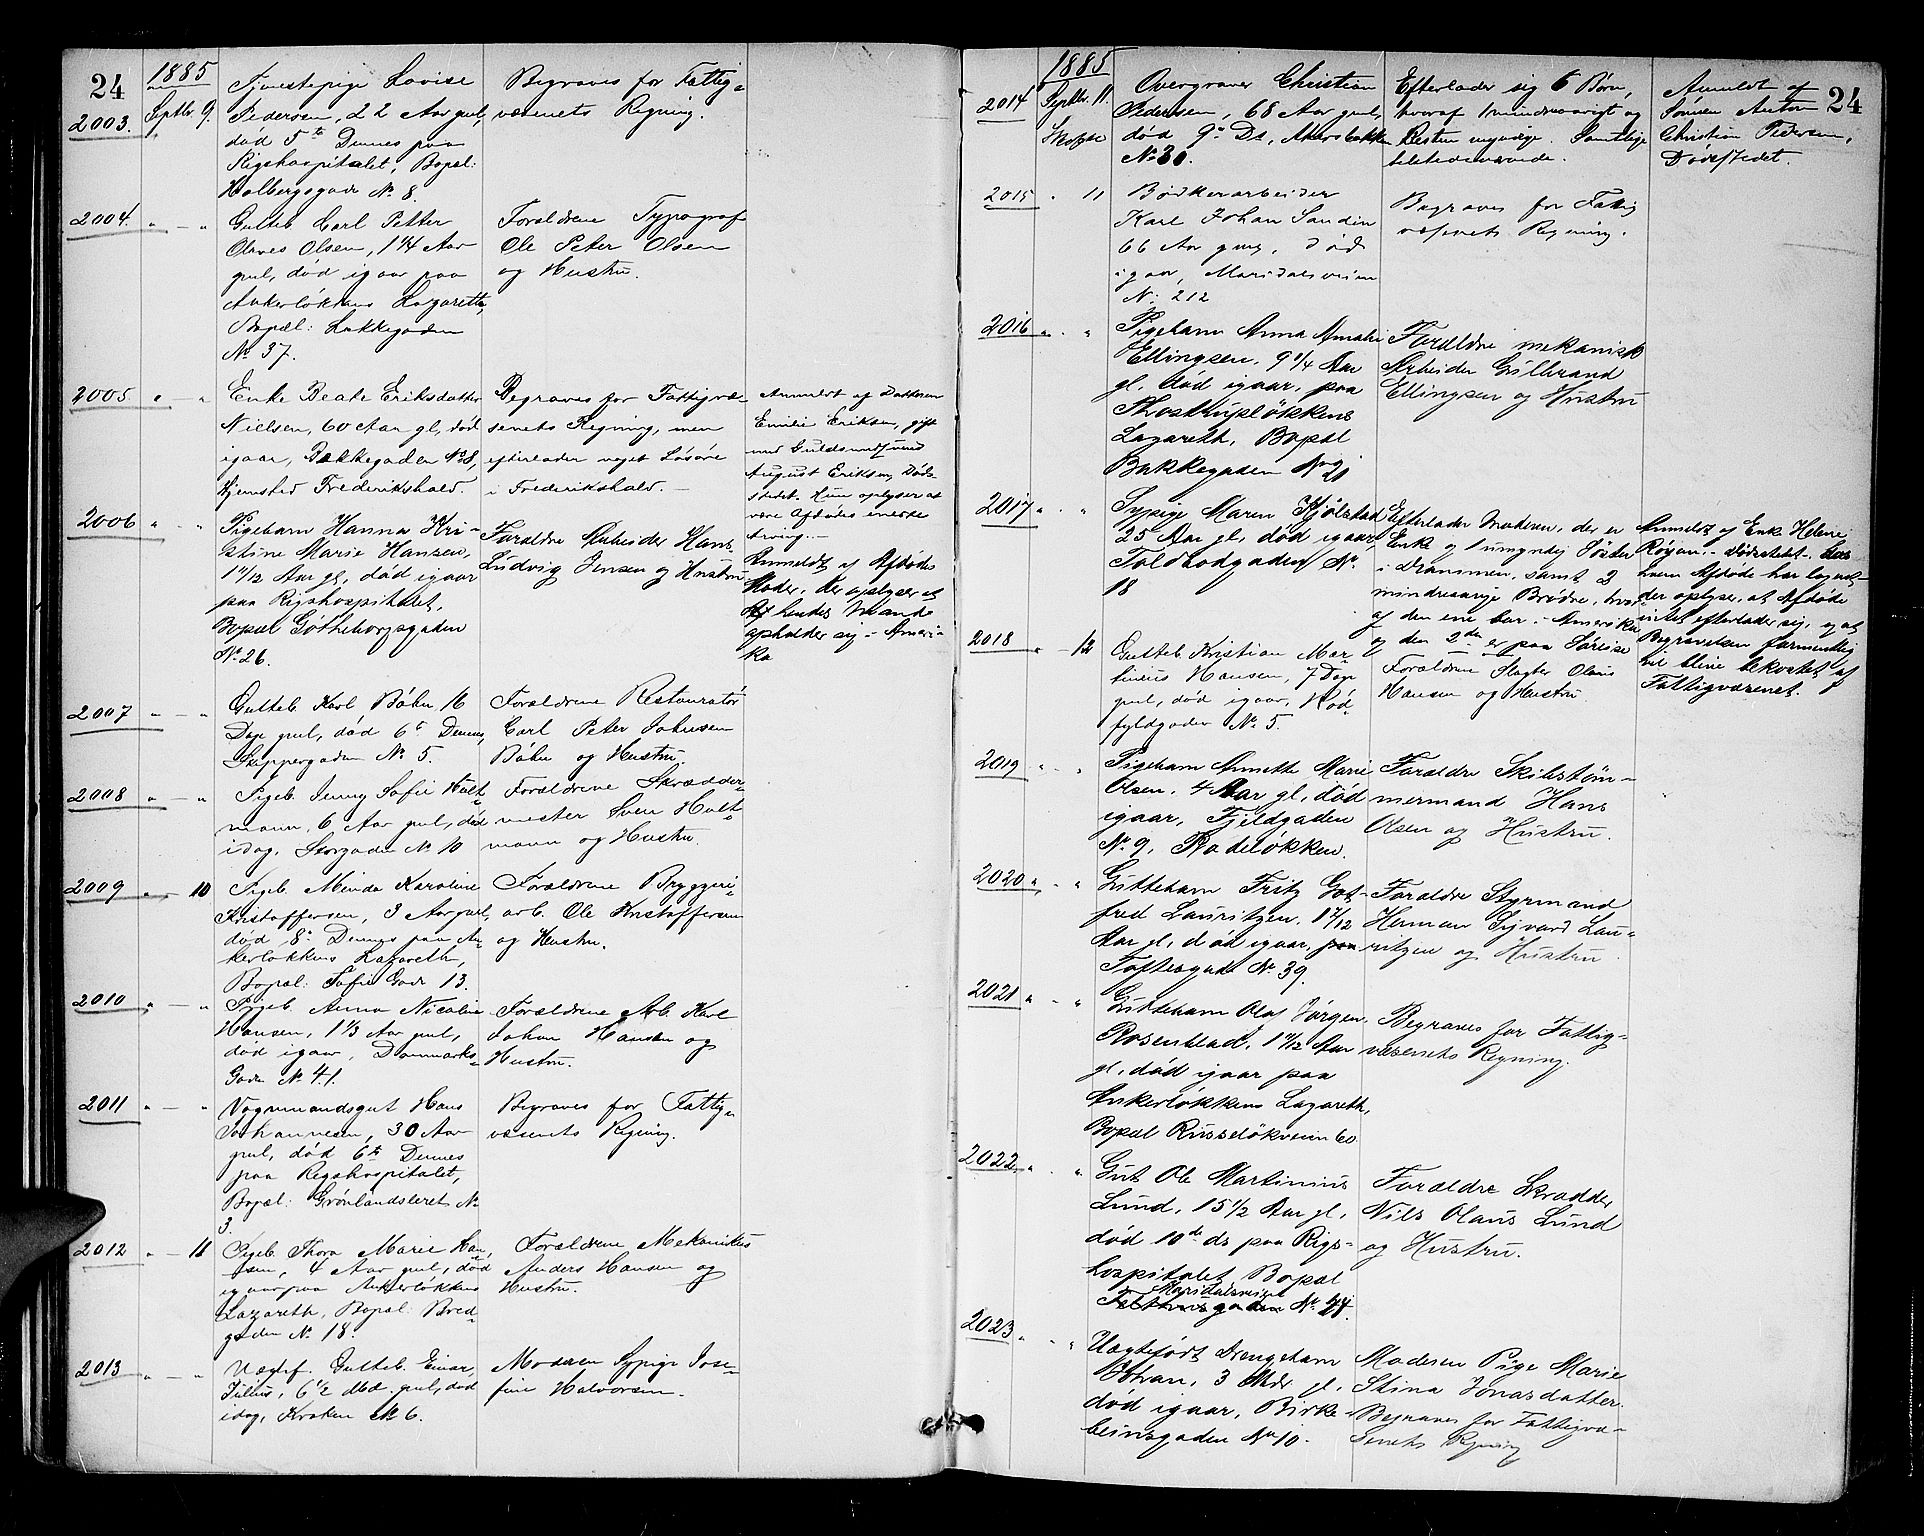 24
1885
2003. Septbr. 9.
Tjenestepige Lovise
Pedersen, 22 Aar gml,
død 5te Dennes paa
Rigshospitalet, Bopæl:
Holbergsgade No 8.
Begraves for Fattig-
væsenets Regning.
2004. " — "
Gutteb. Carl Petter
Olaves Olsen, 1 1/4 Aar
gml, død igaar paa
Ankerløkkens Lazareth,
Bopæl: Lakkegaden
No 37.
Forældrene Typograf
Ole Peter Olsen
og Hustru.
2005. " — "
Enke Beate Eriksdatter
Nielsen, 60 Aar gl, død
igaar, Bakkegaden No 8,
Hjemsted Frederikshald.
Begraves for Fattigvæ-
senets Regning, men
efterlader noget Løsøre
i Frederikshald. —
Anmeldt af Datteren
Emilie Eriksen, gift
med Guldsmedsvend
August Eriksen, Døds-
stedet. Hun oplyser at
være Afdødes eneste
Arving. —
2006 " "
Pigebarn Hanna Kri-
stine Marie Hansen,
Aar gl, død igaar
paa Rigshospitalet,
Bopæl Gøtheborgsgaden
No 26.
Forældre Arbeider Hans
Ludvig Jensen og Hustru
Anmeldt af Afdødes
Moder, der oplyser at
hendes Mand
opholder sig i Ameri-
ka
2007 " — "
Gutteb. Karl Bøhn 16
Dage gml, død 6te Dennes,
Grappergaden No 5.
Forældrene Restauratør
Carl Peter Johnsen
Bøhn og Hustru.
2008 " — "
Pigeb. Jenny Sofie Hult-
mann, 6 Aar gml, død
idag, Storgaden No 10
Forældrene Skrædder-
mester Sven Hult-
mann og Hustru.
2009 " — 10
Pigeb. Minda Karoline
Kristoffersen, 3 Aar gml,
død 8de Dennes paa An-
kerløkkens Lazareth,
Bopæl: Sofie Gade 13.
Forældrene Bryggeri-
arb. Ole Kristoffersen
og Hustru.
2010 " — "
Pigeb. Anna Nicoline
Hansen, 1 1/3 Aar gml,
død igaar, Danmarks-
Gade No 41.
Forældrene Arb. Karl
Johan Hansen og
Hustru.
2011 " — "
Vognmandsgut Hans
Johannesen, 30 Aar
gml, død 6te Dennes
paa Rigshospitalet,
Bopæl: Grønlandsleret No
3.
Begraves for Fattig-
væsenets Regning.
2012 " — 11
Pigeb. Thora Marie Han-
sen, 4 Aar gml, død
igaar paa Ankerløkkens
Lazareth, Bopæl: Bred-
gaden No 18.
Forældrene Mekanikus
Anders Hansen og
Hustru.
2013 " — "
Uægtef. Gutteb. Einar
Julius, 6 1/2 Md. gml, død
idag, Kroken No 6.
Moderen Sypige Jose-
fine Halvorsen.
24
1885
2014 Septbr. 11.
Skifte
Overgraver Christian
Pedersen, 68 Aar gml,
død 9de Ds, Akersbakken
No 30.
Efterlader sig 6 Børn,
hvoraf 1 mindreaarigt og
Resten myndige. Samtlige
tilstedeværende.
Anmeldt af
Sønnen Anton
Christian Pedersen,
Dødsstedet.
2015 " 11
Bødkerarbeider
Karl Johan Sandin
66 Aar gml, død
igaar, Maridalsveien
No 212
Begraves for Fattig
væsenets Regning.
2016 " "
Pigebarn Anna Amalie
Ellingsen, 9 1/4 Aar
gl, død igaar, paa
Throstrupløkkens
Lazareth, Bopæl
Bakkegaden No 21
Forældre mekanisk
Arbeider Gulbrand
Ellingsen og Hustru
2017 " "
Sypige Maren Kjølstad
25 Aar gl, død igaar,
Toldbodgaden No
18
Efterlader Moderen, der er
Enke og 1 umyndig Søster
i Drammen, samt 2
mindreaarige Brødre, hvor-
af den ene bor i Amerika
og den 2den er paa Søreise
Anmeldt af Enke Helene
Røyan, — Dødsstedet — hos
hvem Afdøde har logeret
der oplyser, at Afdøde
intet efterlader sig, og at
Begravelsen formentlig
vil blive bekostet af
Fattigvæsenet.
2018 " — 12
Gutteb. Kristian Mar-
tinius Hansen, 7 Dage
gml, død igaar, Rød-
fyldgaden No 5.
Forældrene Slagter Olaus
Hansen og Hustru
2019 " "
Pigebarn Annette Marie
Olsen, 4 Aar gl, død
igaar, Fjeldgaden
No 9, Rodeløkken.
Forældre Skibstøm-
mermand Hans
Olsen og Hustru.
2020 " "
Guttebarn Fritz Got-
fred Lauritzen, 1 7/12
Aar gl, død igaar, paa
Toftesgade No 39.
Forældre Styrmand
Herman Sigvard Lau-
ritzen og Hustru.
2021 " "
Guttebarn Olaf Jørgen
Rosenblad, Aar
gl, død igaar paa
Ankerløkkens Lazareth,
Bopæl Russeløkveien 60
Begraves for Fattig-
væsenets Regning.
2022 " "
Gut Ole Martinius
Lund, 15 1/2 Aar gl,
død 10de ds paa Rigs-
hospitalet Bopæl
Maridalsveien
No 24.
Forældre Skrædder
Nils Olaus Lund
og Hustru.
2023 " "
Uægtefødt Drengebarn
Johan, 3 Mdr gl,
død igaar, Birke-
beinsgaden No 10.
Moderen Pige Marie
Stina Jonasdatter.
Begraves for Fattigvæ-
senets Regning